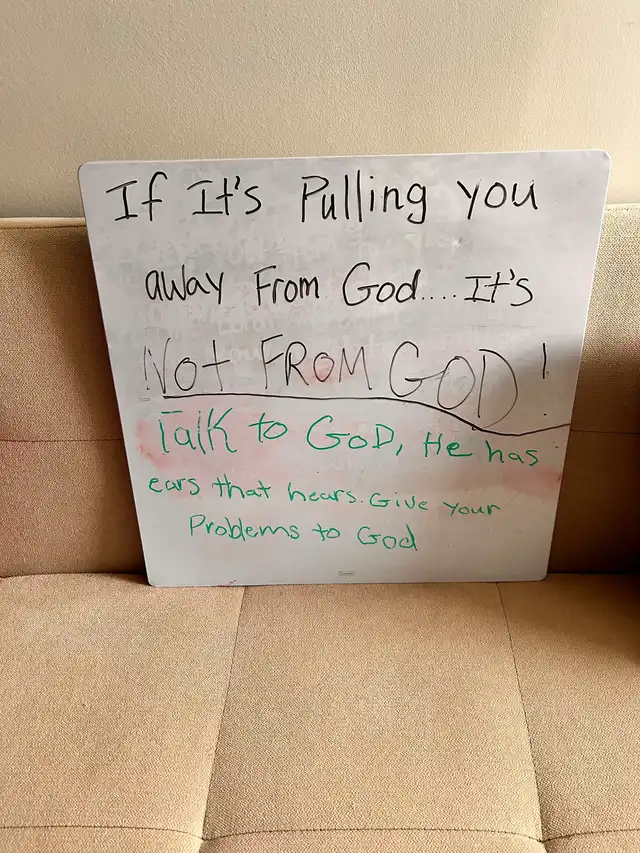 If It's Pulling you
away From God....It's
Not FROM GOD!
Talk to GoD, He has
ears that hears. Give your
Problems to God